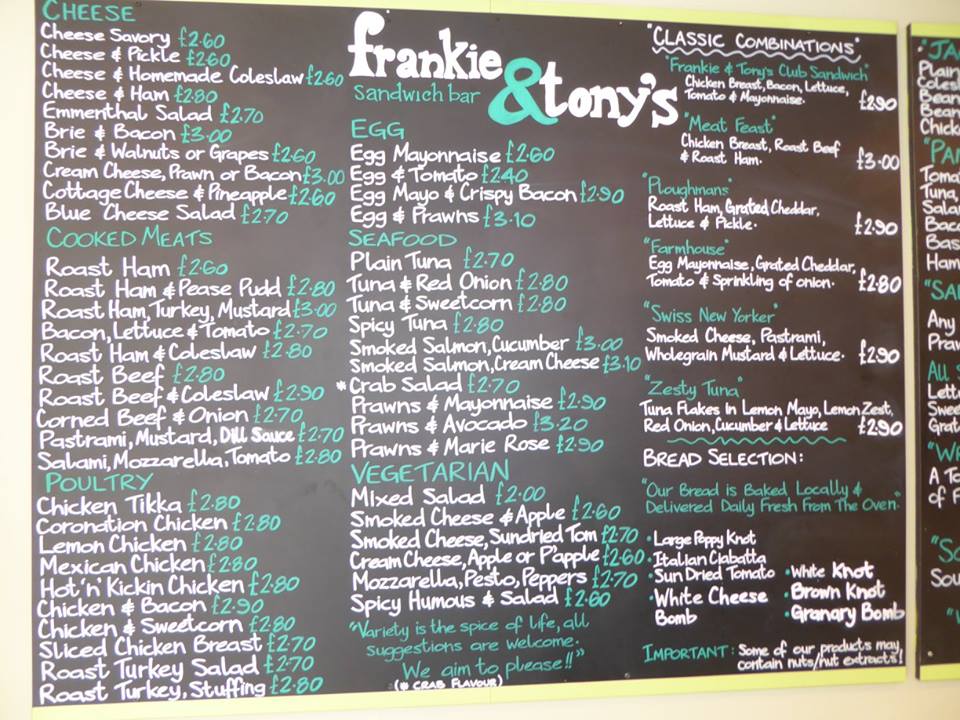 CHEESE
Cheese Savory £2.60
Cheese & Pickle £2.60
Cheese & Homemade Coleslaw £2.60
Cheese & Ham £2.80
Emmenthal Salad £2.70
Brie & Bacon £3.00
Brie & Walnuts or Grapes £2.60
Cream Cheese, Prawn or Bacon £3.00
Cottage Cheese & Pineapple £2.60
Blue Cheese Salad £2.70
COOKED MEATS
Roast Ham £2.60
Roast Ham & Pease Pudd £2.80
Roast Ham, Turkey, Mustard £3.00
Bacon, Lettuce & Tomato £2.70
Roast Ham & Coleslaw £2.80
Roast Beef £2.80
Roast Beef & Coleslaw £2.90
Corned Beef & Onion £2.70
Pastrami, Mustard, Dill Sauce £2.70
Salami, Mozzarella, Tomato £2.80
POULTRY
Chicken Tikka £2.80
Coronation Chicken £2.80
Lemon Chicken £2.80
Mexican Chicken £2.80
Hot 'n' Kickin Chicken £2.80
Chicken & Bacon £2.90
Chicken & Sweetcorn £2.80
Sliced Chicken Breast £2.70
Roast Turkey Salad £2.70
Roast Turkey, Stuffing £2.80
frankie
& tony's
sandwich bar
EGG
Egg Mayonnaise £2.60
Egg & Tomato £2.40
Egg Mayo & Crispy Bacon £2.90
Egg & Prawns £3.10
SEAFOOD
Plain Tuna £2.70
Tuna & Red Onion £2.80
Tuna & Sweetcorn £2.80
Spicy Tuna £2.80
Smoked Salmon, Cucumber £3.00
Smoked Salmon, Cream Cheese £3.10
*Crab Salad £2.70
Prawns & Mayonnaise £2.90
Prawns & Avocado £3.20
Prawns & Marie Rose £2.90
VEGETARIAN
Mixed Salad £2.00
Smoked Cheese & Apple £2.60
Smoked Cheese, Sundried Tom £2.70
Cream Cheese, Apple or P'apple £2.60
Mozzarella, Pesto, Peppers £2.70
Spicy Humous & Salad £2.60
"Variety is the spice of life, all
suggestions are welcome.
We aim to please!!"
(* CRAB FLAVOUR)
"CLASSIC COMBINATIONS"
"Frankie & Tony's Club Sandwich"
Chicken Breast, Bacon, Lettuce,
Tomato & Mayonnaise. £2.90
"Meat Feast"
Chicken Breast, Roast Beef
& Roast Ham. £3.00
"Ploughmans"
Roast Ham, Grated Cheddar,
Lettuce & Pickle. £2.90
"Farmhouse"
Egg Mayonnaise, Grated Cheddar,
Tomato & Sprinkling of onion. £2.80
"Swiss New Yorker"
Smoked Cheese, Pastrami,
Wholegrain Mustard & Lettuce. £2.90
"Zesty Tuna"
Tuna Flakes In Lemon Mayo, Lemon Zest,
Red Onion, Cucumber & Lettuce £2.90
BREAD SELECTION:
"Our Bread is Baked Locally &
Delivered Daily Fresh From The Oven."
• Large Poppy Knot
• Italian Ciabatta
• Sun Dried Tomato
• White Cheese
Bomb
• White Knot
• Brown Knot
• Granary Bomb
IMPORTANT: Some of our products may
contain nuts/nut extracts!
Plain
Any
of F